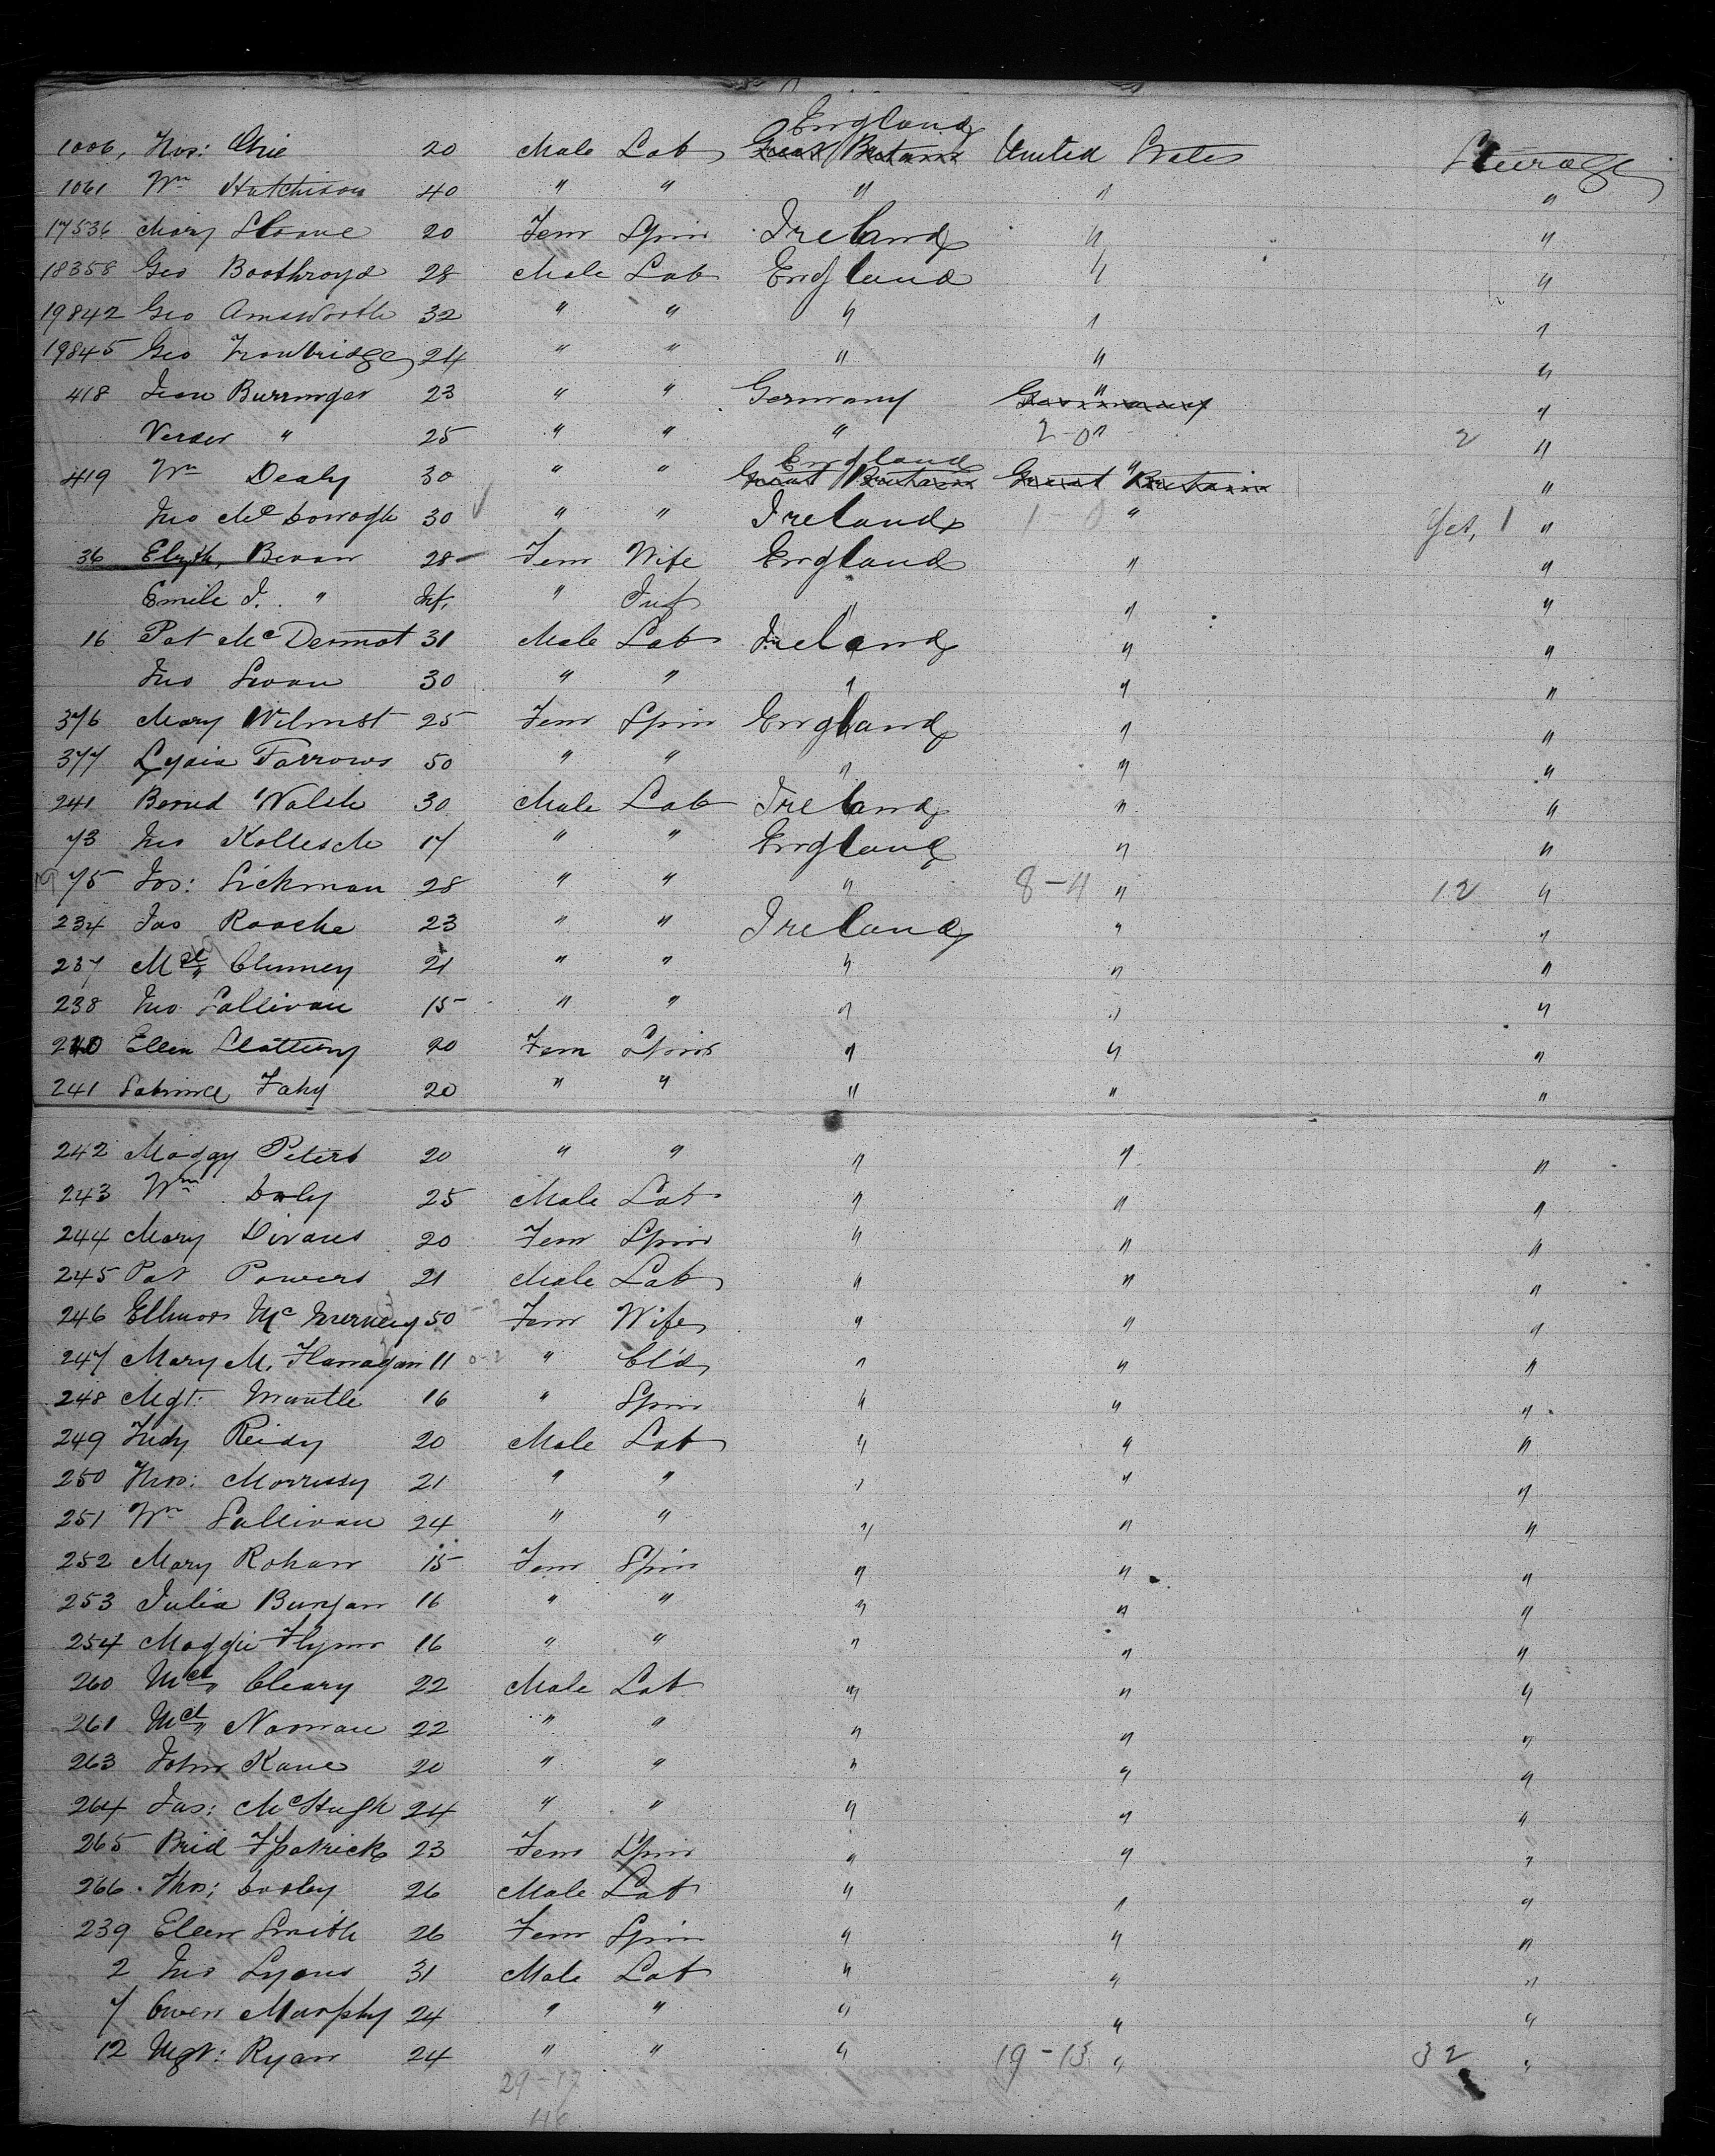 England
1006, Thos: Ohie 20 Male Lab Great Britain United States Steerage
1061 Wm Hutchison 40 " " " " "
17536 Mary Sloane 20 Fem Spin Ireland " "
18358 Geo Boothroyd 28 Male Lab England " "
19842 Geo Ainsworth 32 " " " " "
19845 Geo Trowbridge 24 " " " " "
418 Burringer 23 " " Germany Germany " "
" 25 " " " 2-0 " 2 "
England
419 Wm Dealy 30 " " Great Britain Great Britain " "
Jno McDonogh 30 " " Ireland 1 0 " Yes, 1 "
36 Elizth, Bevan 28 Fem Wife England " "
Emile J. " Inf. " Inf " " "
16 Pat McDermot 31 Male Lab Ireland " "
Jno Swan 30 " " " " "
376 Mary Wilmst 25 Fem Spin England " "
377 Lydia Farrows 50 " " " " "
241 Bernd Walsh 30 Male Lab Ireland " "
73 Jno Kollesch 17 " " England " "
75 Jos: Sickman 28 " " " 8-4 " 12 "
234 Jas Rooche 23 " " Ireland " "
237 Mcl Clumey 21 " " " " "
238 Jno Sullivan 15 " " " " "
240 Ellen Slattery 20 Fem Spin " " "
241 Fahy 20 " " " " "
242 Maggy Peters 20 " " " " "
243 Wm Daly 25 Male Lab " " "
244 Mary Divans 20 Fem Spin " " "
245 Pat Powers 21 Male Lab " " "
246 Ellinor McInerney 50 Fem Wife " " "
247 Mary M. Flanagan 11 0-2 " Cld " " "
248 Mgt. Mantle 16 " Spin " " "
249 Judy Reidy 20 Male Lab " " "
250 Thos: Morrissy 21 " " " " "
251 Wm Sullivan 24 " " " " "
252 Mary Rohan 15 Fem Spin " " "
253 Julia Bunyan 16 " " " " "
254 Maggie Flynn 16 " " " " "
260 Mcl Cleary 22 Male Lab " " "
261 Mcl Noonan 22 " " " " "
263 John Kane 20 " " " " "
264 Jas: McHugh 24 " " " " "
265 Brid Fpatrick 23 Fem Spin " " "
266 Thos: Dooley 26 Male Lab " " "
239 Ellen Smith 26 Fem Spin " " "
2 Jno Lyons 31 Male Lab " " "
7 Owen Murphy 24 " " " " "
12 Mgt: Ryan 24 " " " 19-13 " 32 "
29-17
46